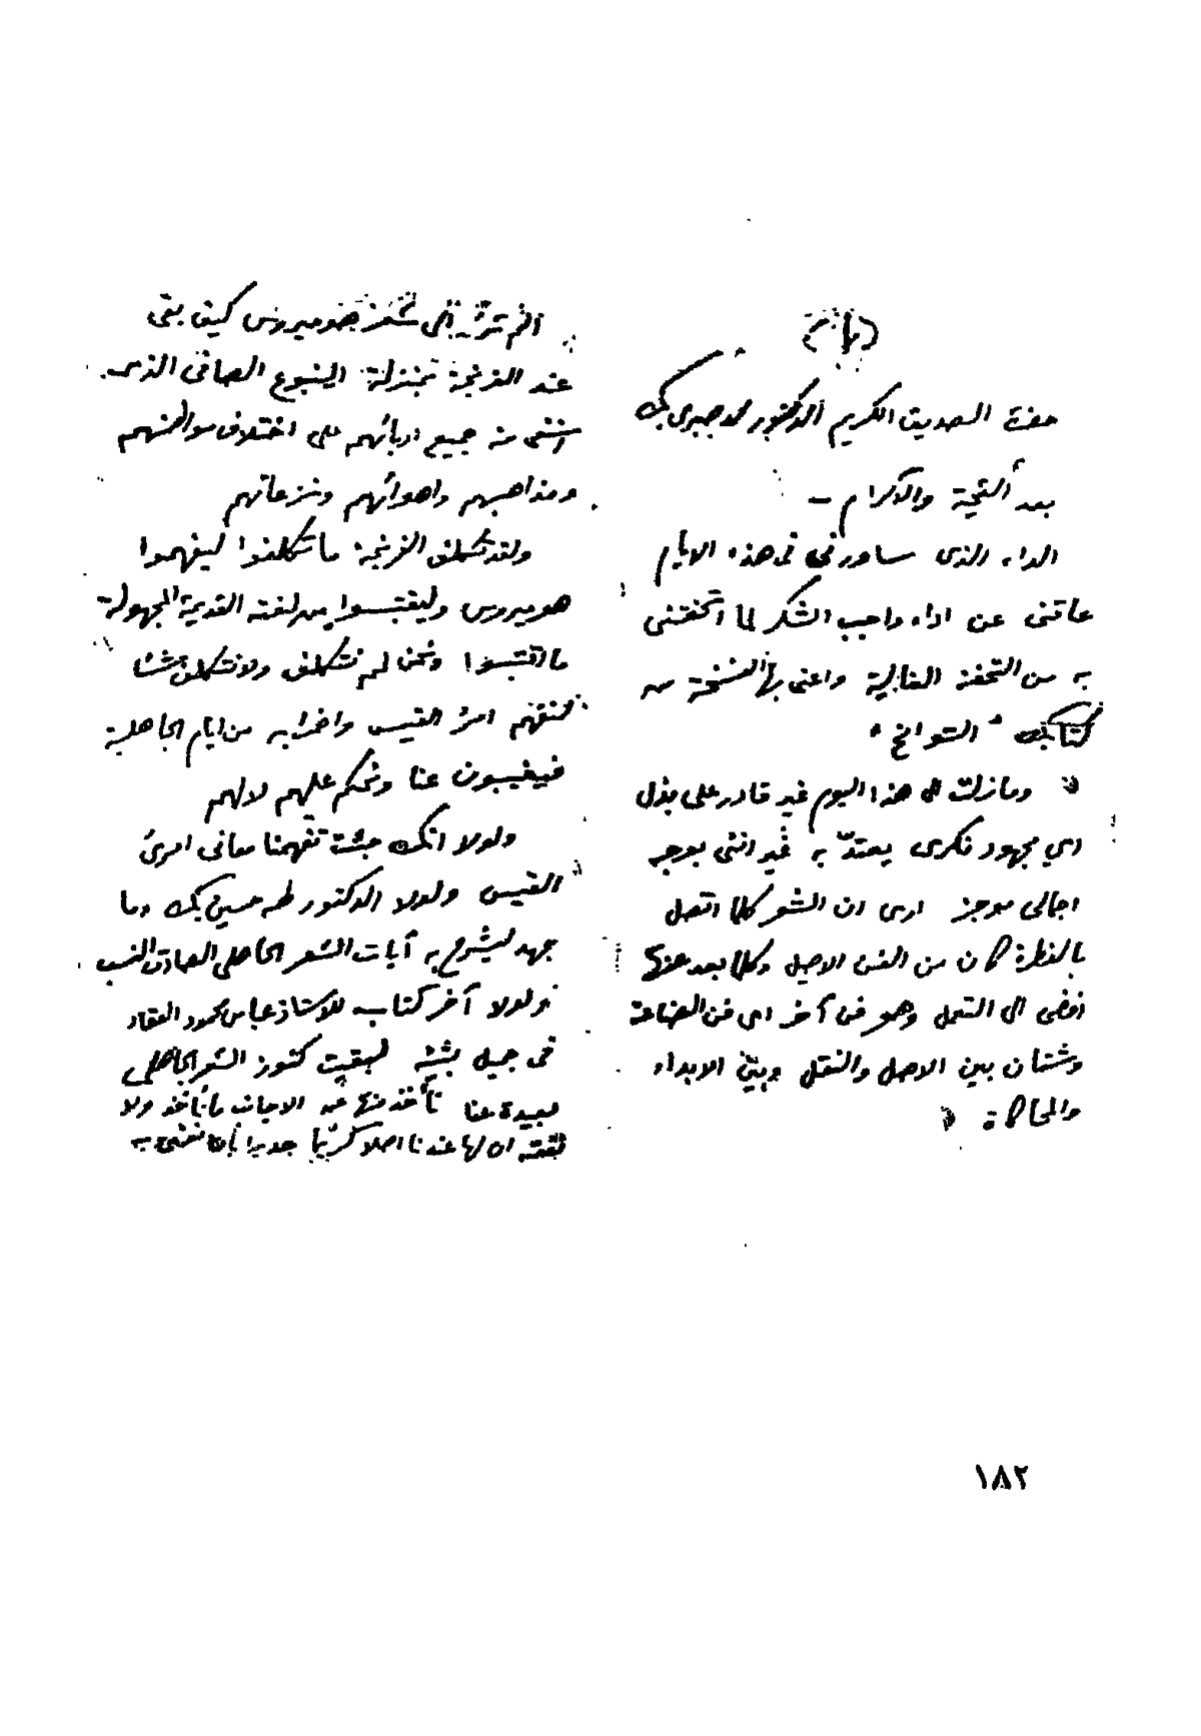 حضرة الصديق الكريم الدكتور محمد صبرى بك
بعد التحية والاكرام —
الداء الذى ساورنى فى هذه الايام
عاقنى عن اداء واجب الشكر لما اتحفتنى
به من التحفة الغالية واعنى بها النسخة من
كتابك " الشوامخ "
« ومازلت الى هذا اليوم غير قادر على بذل
اي مجهود فكرى يعتدّ به غير اننى بوجه
اجمالى موجز ارى ان الشعر كلما اتصل
بالفطرة كان من الفن الاصيل وكلما بعد عنها
افضى الى التعمل وهو فن آخر اى فن الصناعة
وشتان بين الاصل والنقل وبين الابداء
والمحاكاة »
الم تر الى شعر هوميروس كيف بقى
عند الفرنجة بمنزلة الينبوع الصافى الذى
استقى منه جميع ادبائهم على اختلاف مواطنهم
ومذاهبهم واهوائهم ونزعاتهم
ولقد تكلف الفرنجة ما تكلفوا ليفهموا
هوميروس وليقتبسوا من لغته القديمة المجهولة
ما اقتبسوا ونحن لم نتكلف ولا نتكلف شيئا
لنفهم امرؤ القيس واضرابه من ايام الجاهلية
فيغيبون عنا ونحكم عليهم لا لهم
ولولا انك جئت تفهمنا معانى امرئ
القيس ولولا الدكتور طه حسين بك وما
جهد ليشرح به آيات الشعر الجاهلى الصادق النسب
ولولا آخر كتاب للاستاذ عباس محمود العقاد
فى جميل بثينة لبقيت كنوز الشعر الجاهلى
بعيدة عنا نأخذ منها عن الاجانب ما نأخذ ولا
نفقه ان لها عندنا اصلا كريما جديرا بان نعنى به
١٨٢